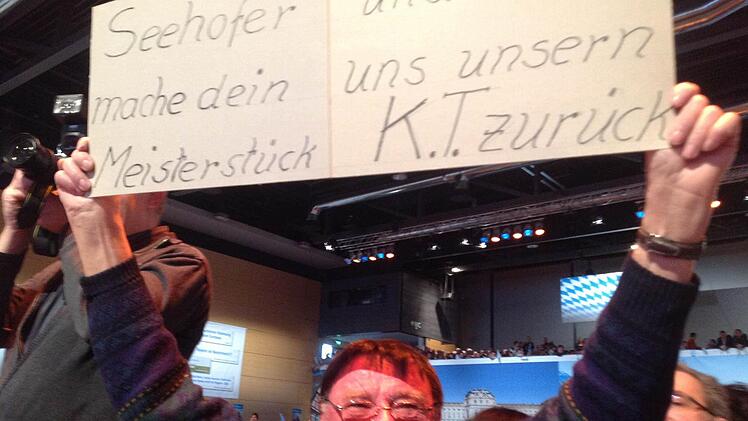 Seehofer
mache dein
Meisterstück
uns unsern
K.T. zurück